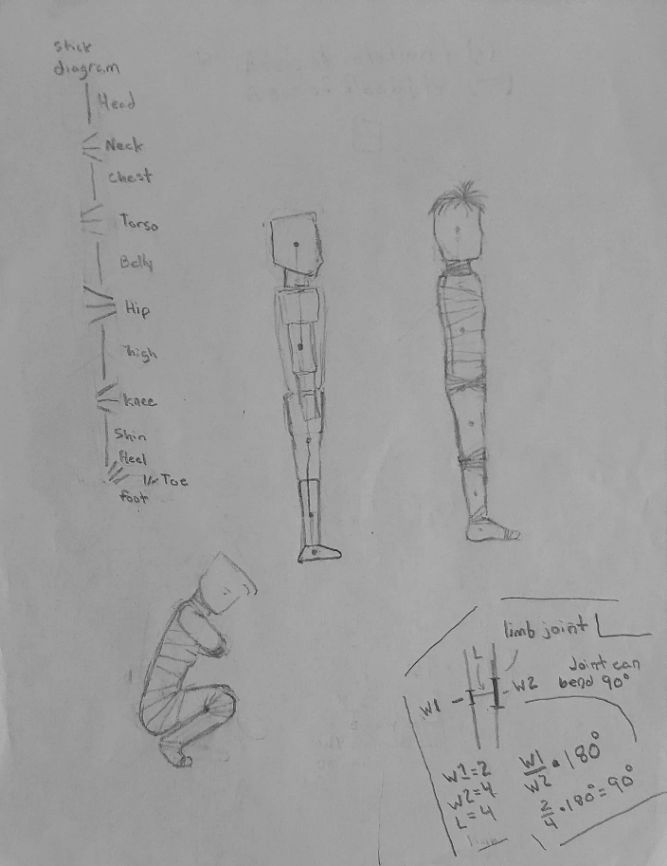 stick
diagram
Head
Neck
Chest
Torso
Belly
Hip
Thigh
Knee
Shin
Heel
Toe
foot
limb joint
L
Joint can
bend 90°
W1
W2
W1=2
W2=4
L=4
W1/W2 • 180°
2/4 • 180° = 90°